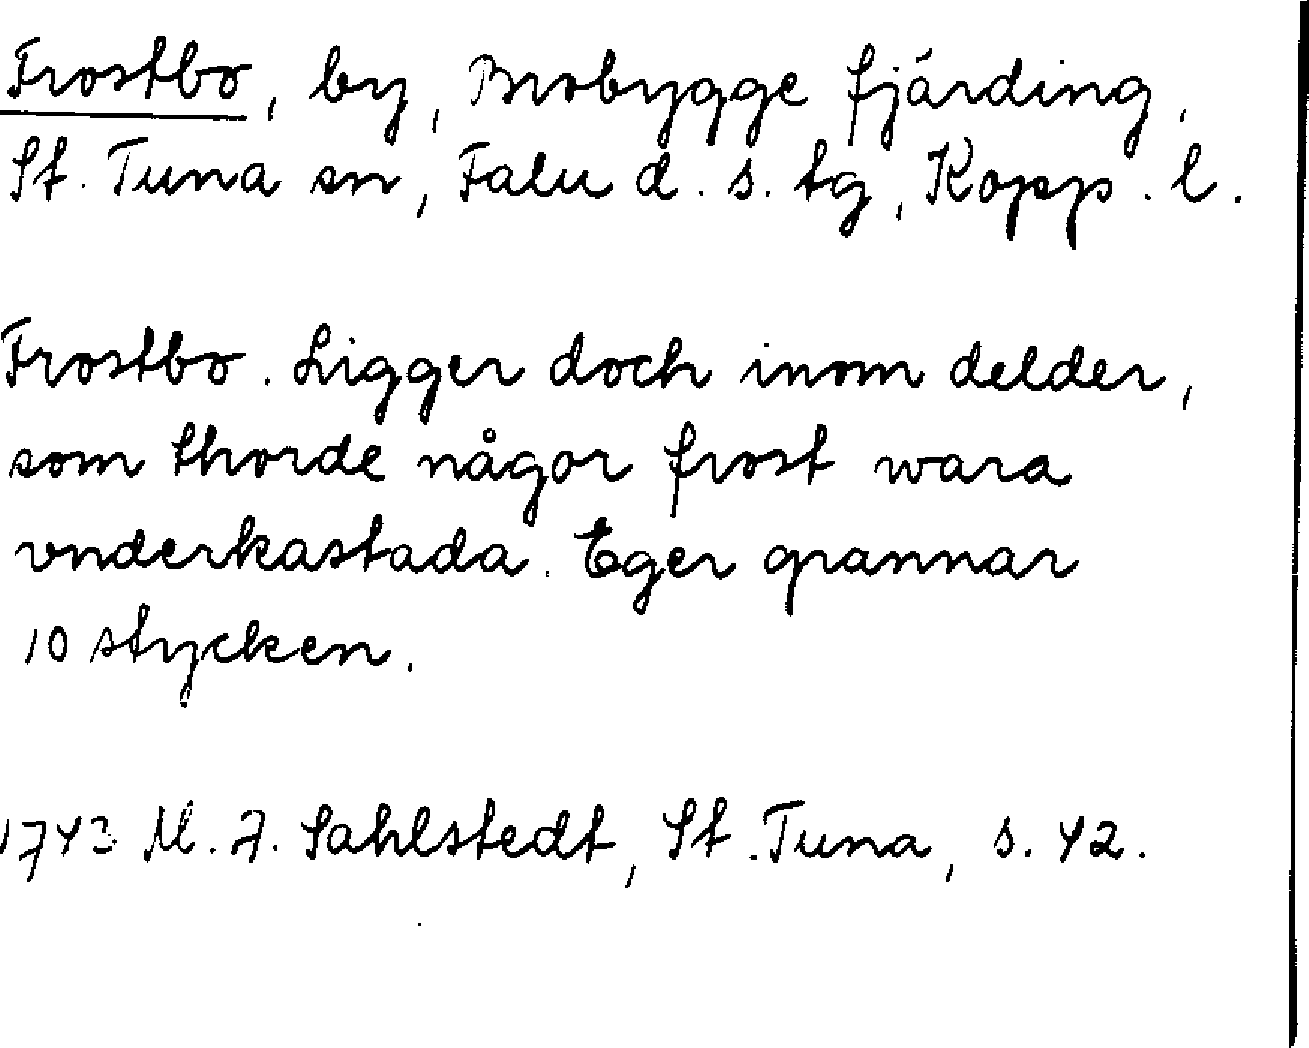 Frostbo, by, Brobygge fjärding,
St. Tuna sn, Falu d. s. tg, Kopp. l.
Frostbo. Ligger doch inom delder,
som thorde någor frost wara
vnderkastada. Eger grannar
10 stycken.
1743 M. A. Sahlstedt, St. Tuna, s. 42.